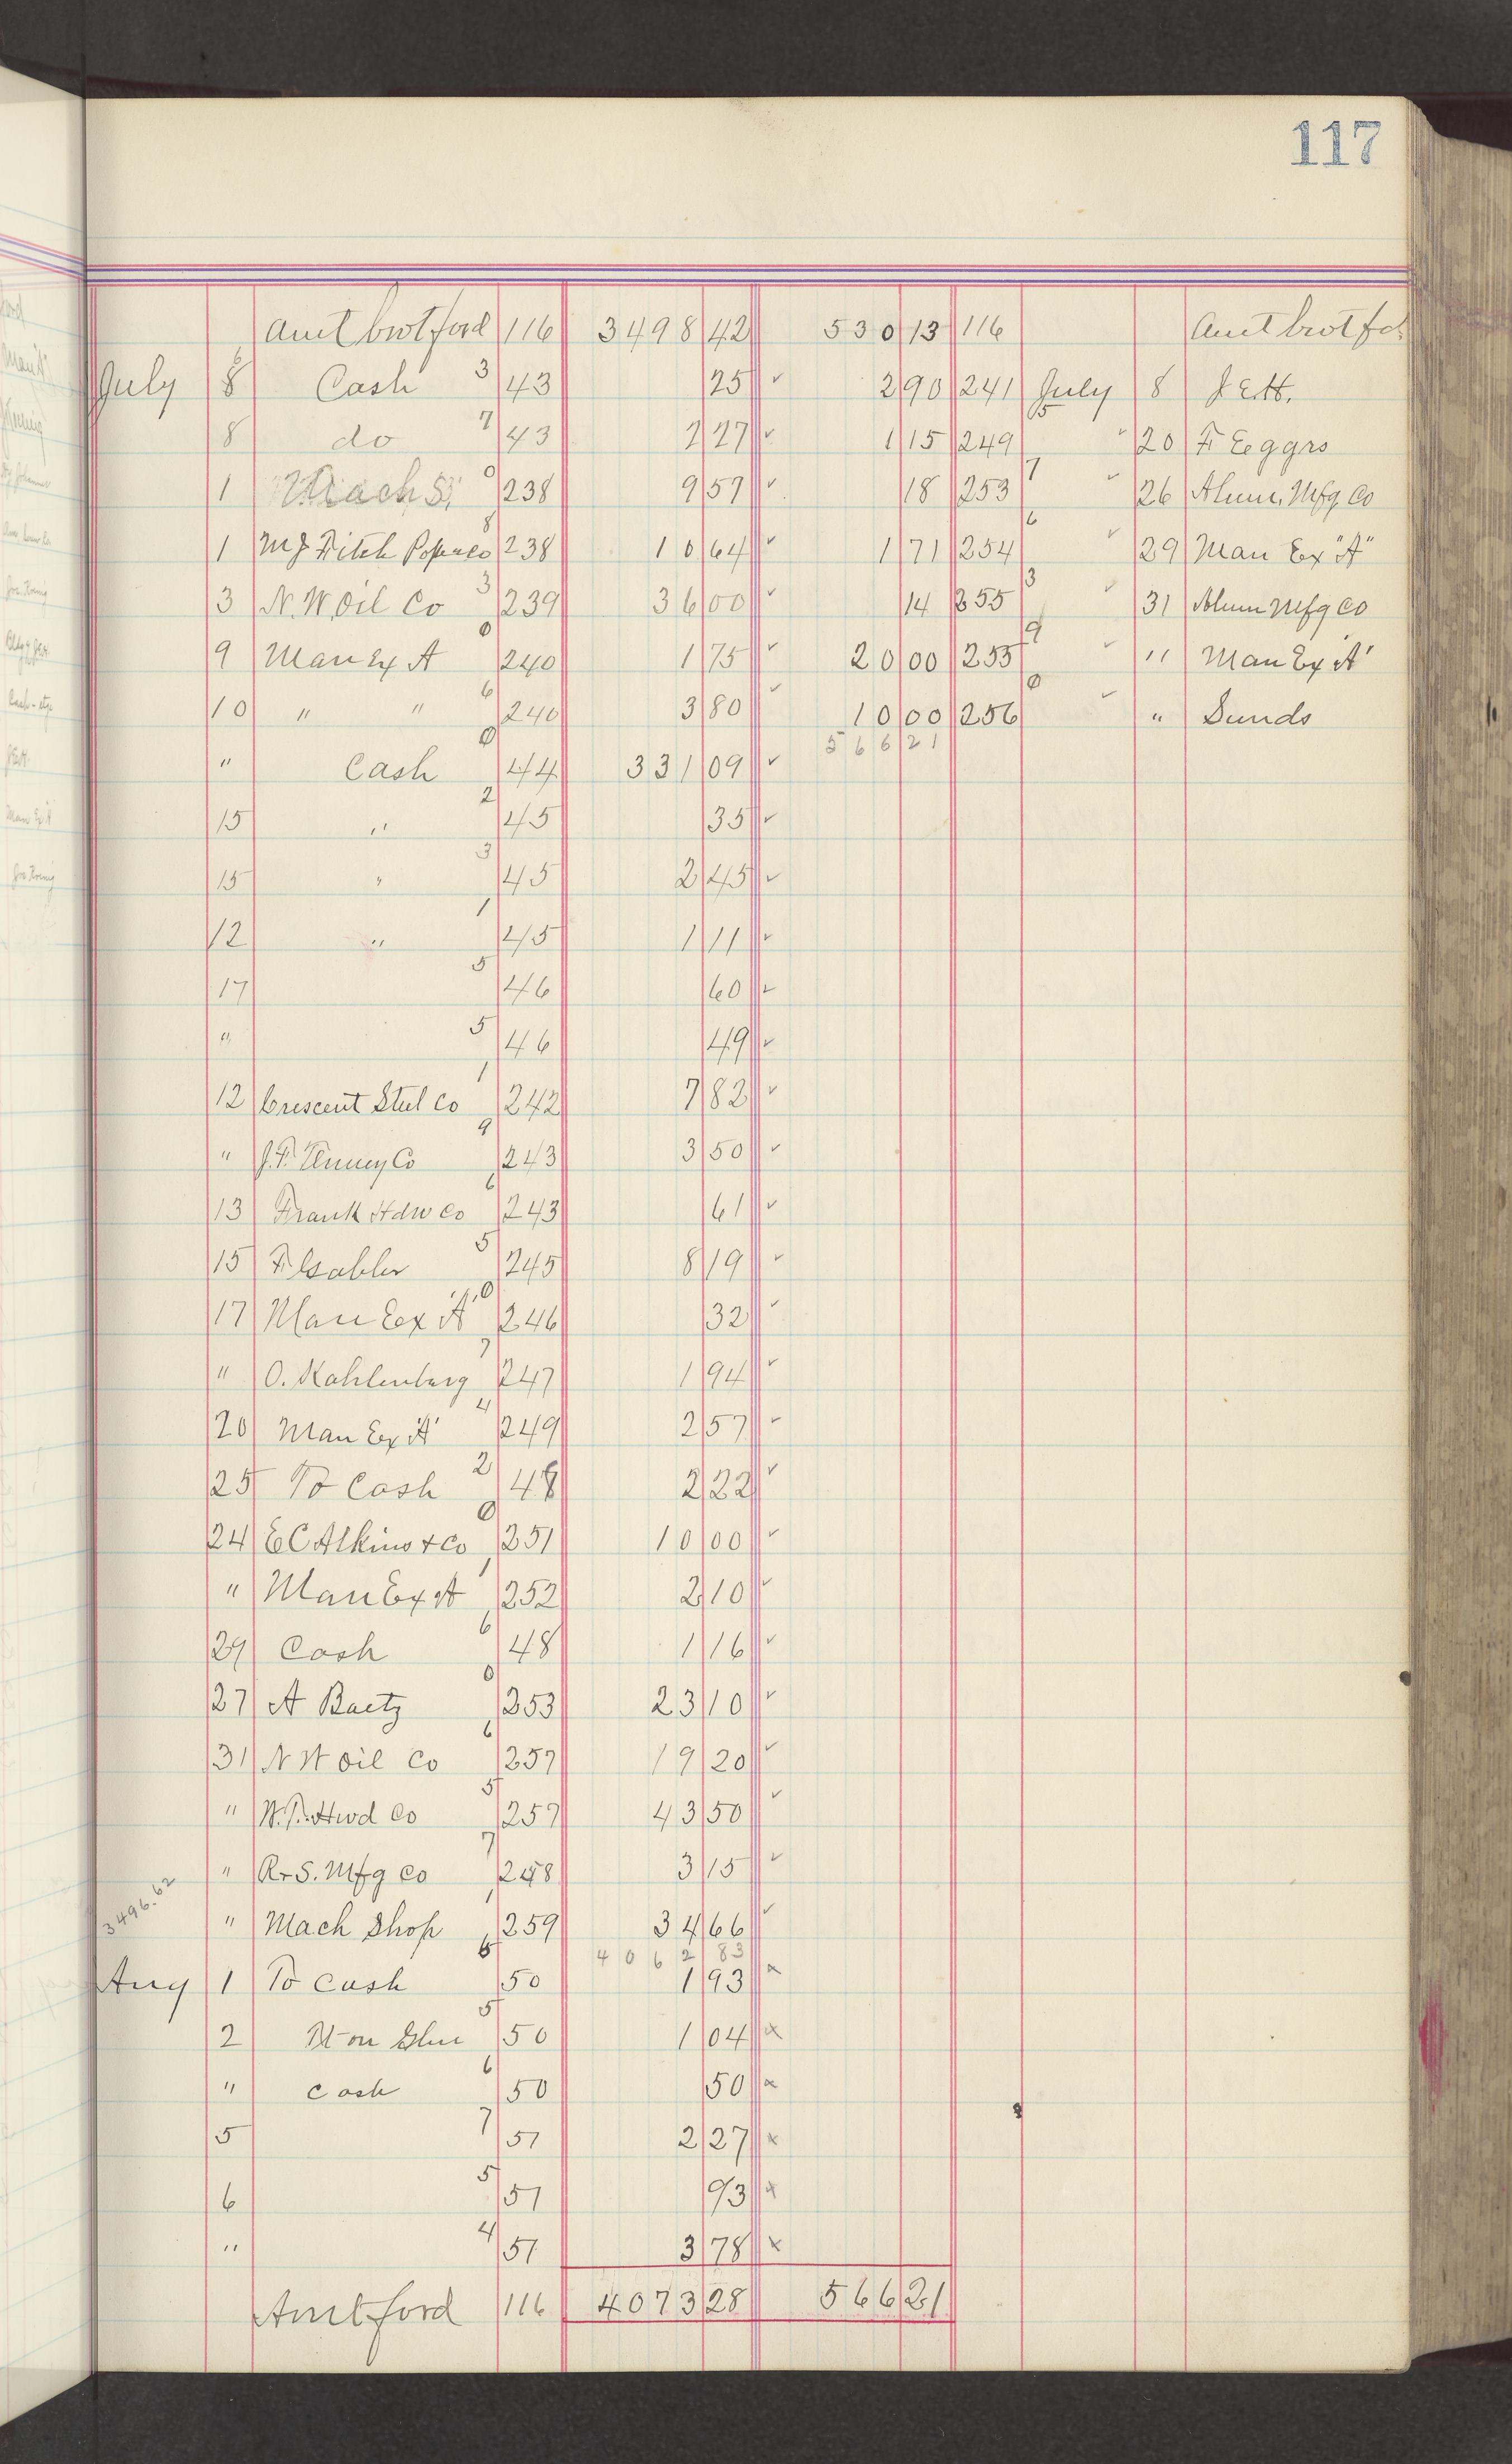 117
Amt brot ford 116 3498 42 530 13 116 Amt brot fd.
July 8 Cash 3 43 25 2 90 241 July 8 J E H.
8 do 7 43 2 27 1 15 249 5 20 F Eggrs
1 Mach S. 0 238 9 57 18 253 7 26 Alum. Mfg Co
1 M J Fitch Paper Co 8 238 10 64 1 71 254 6 29 Man Ex "A"
3 N.W. Oil Co 3 239 36 00 14 255 3 31 Alum Mfg Co
9 Man Ex A 0 240 1 75 20 00 255 9 " Man Ex A'
10 " " 6 240 3 80 10 00 256 0 " Sunds
566 21
" Cash 0 44 331 09
15 " 2 45 35
15 " 3 45 2 45
12 " 1 45 1 11
17 5 46 60
" 5 46 49
12 Crescent Steel Co 1 242 7 82
" J.F. Tenney Co 9 243 3 50
13 Frank Hdw Co 6 243 61
15 F Gabler 5 245 8 19
17 Man Ex "A" 0 246 32
" O. Kahlenberg 7 247 1 94
20 Man Ex "A" 4 249 2 57
25 To Cash 2 48 2 22
24 E C Atkins & Co 0 251 10 00
" Man Ex A 1 252 2 10
29 Cash 6 48 1 16
27 A Baetz 0 253 23 10
31 N W Oil Co 6 257 19 20
" Hwd Co 5 257 43 50
" R-S. Mfg Co 7 258 3 15
3496.62
" Mach Shop 1 259 34 66
4062 83
Aug 1 To Cash 6 50 1 93
2 on Glue 5 50 1 04
" Cash 6 50 50
5 7 51 2 27
6 5 51 93
" 4 51 3 78
Amt ford 116 4073 28 566 21